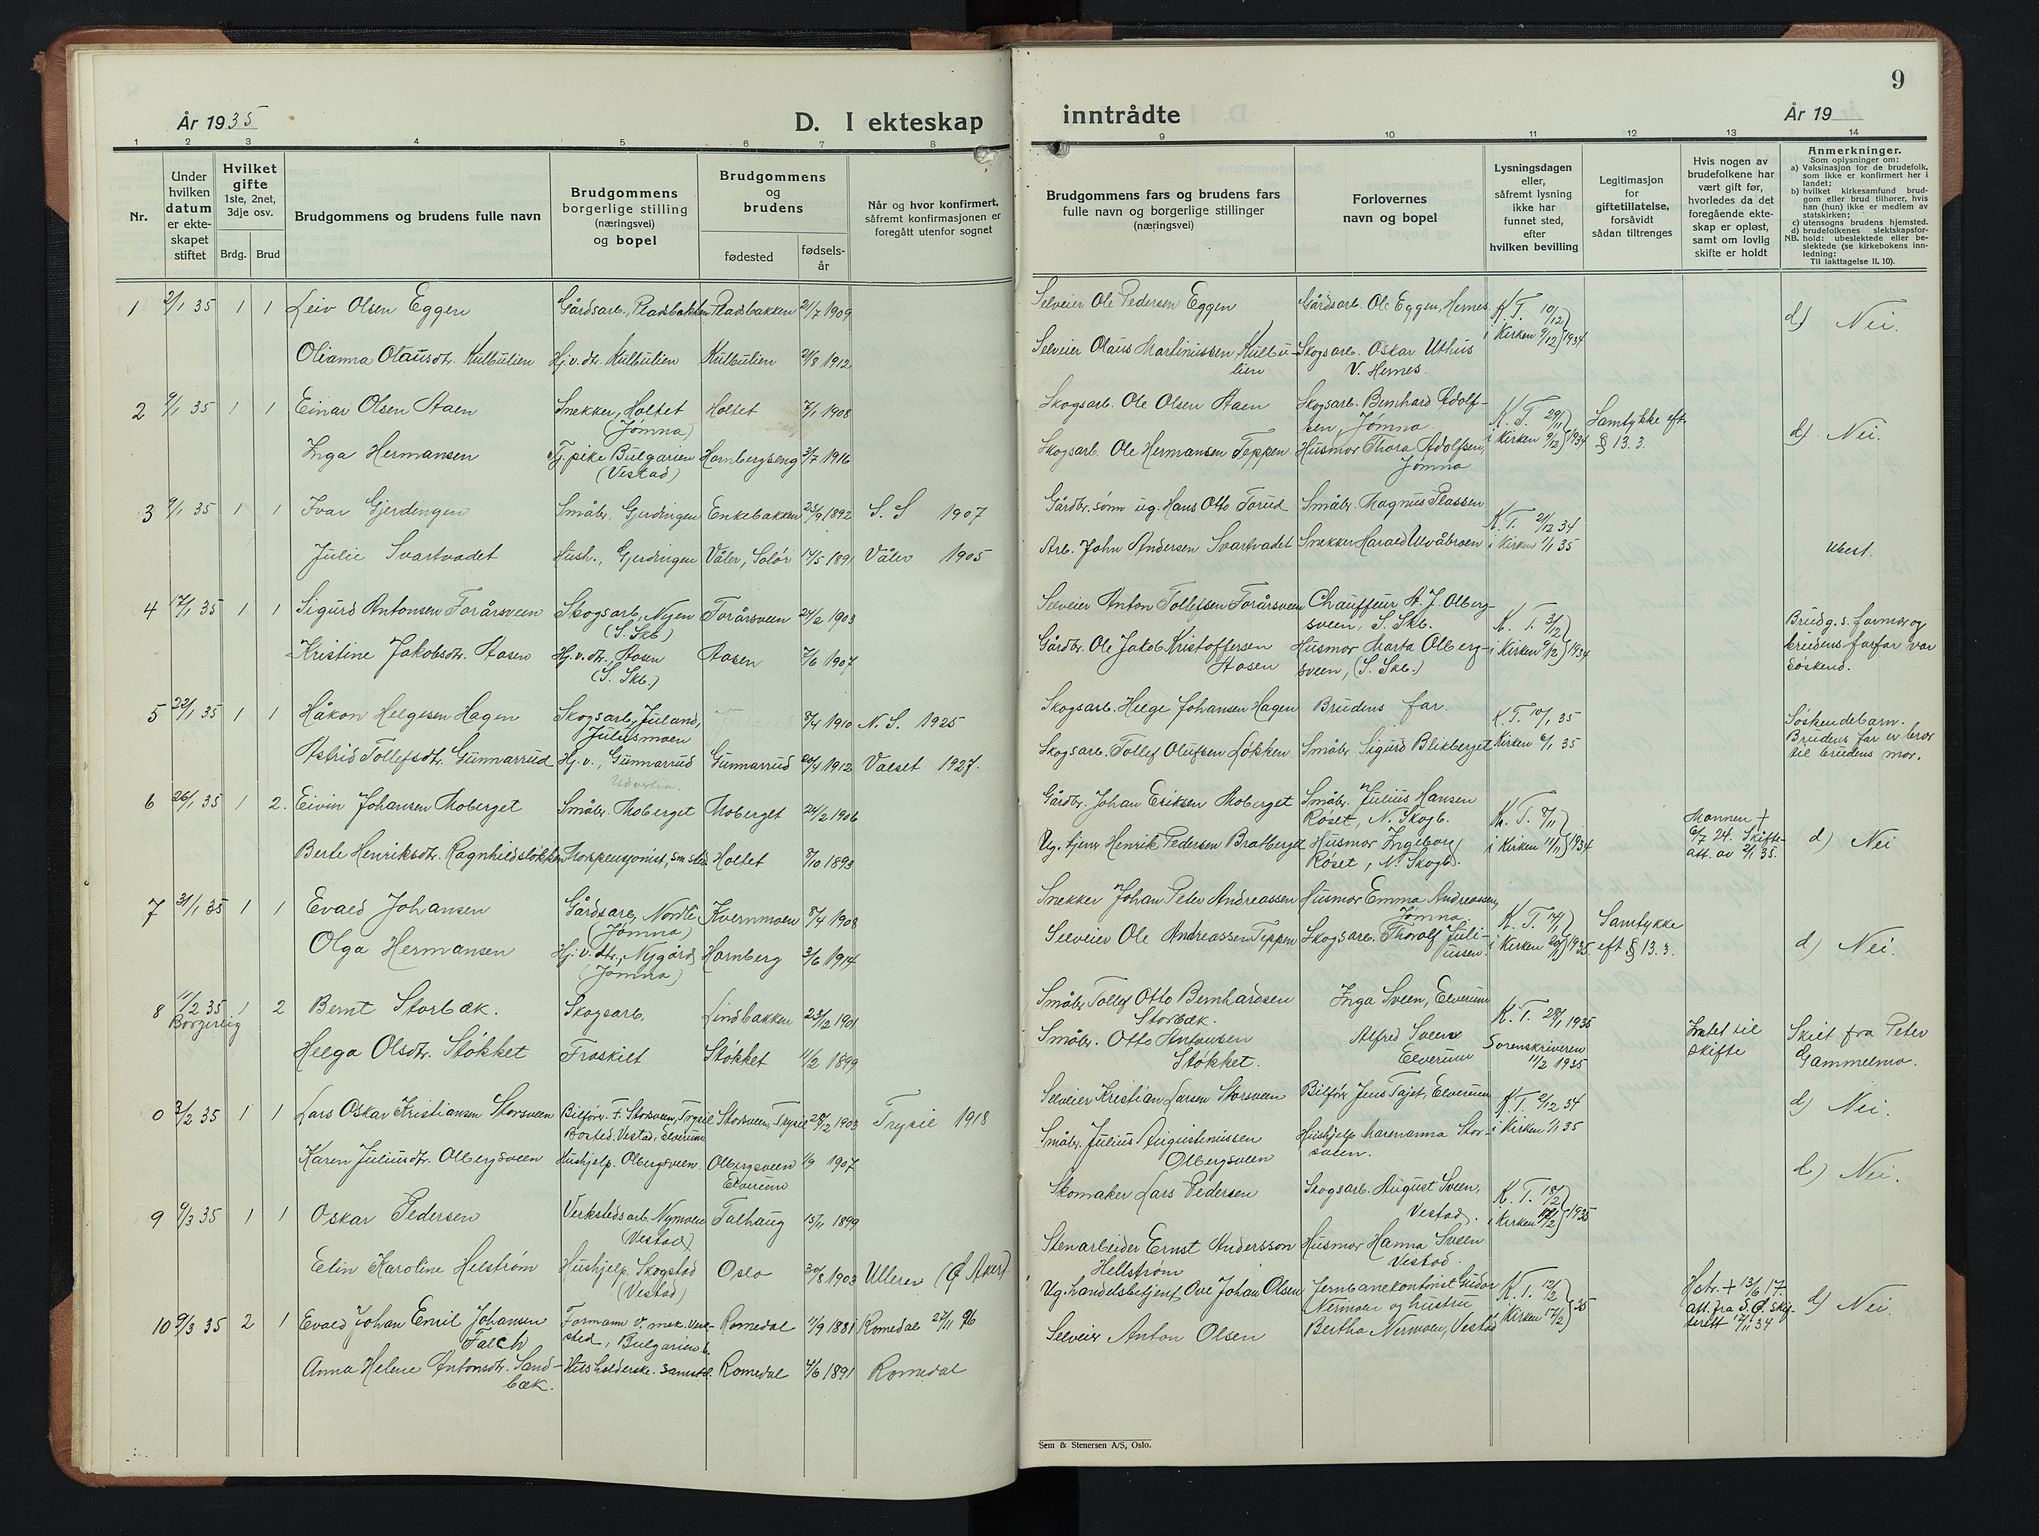 År 1935
D. I ekteskap
1 2 3 4 5 6 7 8
Nr.
Under hvilken datum er ekteskapet stiftet
Hvilket gifte 1ste, 2net, 3dje osv.
Brdg. Brud
Brudgommens og brudens fulle navn
Brudgommens borgerlige stilling (næringsvei) og bopel
Brudgommens og brudens
fødested
fødselsår
Når og hvor konfirmert, såfremt konfirmasjonen er foregått utenfor sognet
1 2/1 35 1 1 Leiv Olsen Eggen Gårdsarb., Pladsbakken Pladsbakken 21/7 1909
Olianna Olausdtr. Kulbulien Hj.v.dtr. Kulbulien Kulbulien 21/8 1912
2 9/1 35 1 1 Einar Olsen Aaen Snekker, Holtet Holtet 7/1 1908
(Jømna)
Inga Hermansen Tj.pike Bulgarien Hornbergseng 3/7 1916
(Vestad)
3 9/1 35 1 1 Ivar Gjerdingen Småbr. Gjerdingen Enkebakken 23/9 1892 S. S 1907
Julie Svartvadet Hush., Gjerdingen Våler, Solør 14/5 1891 Våler 1905
4 17/1 35 1 1 Sigurd Antonsen Forårsveen Skogsarb., Nyen Forårsveen 24/2 1903
(S. Skb.)
Kristine Jakobsdtr. Aasen Hj.v.dtr., Aasen Aasen 7/6 1907
(S. Skb.)
5 22/1 35 1 1 Håkon Helgesen Hagen Skogsarb., Juland, 8/4 1910 N. S. 1925
Julusmoen
Astrid Tollefsdtr. Gunnarrud Hj.v., Gunnarrud Gunnarrud 20/4 1912 Valset 1927.
6 26/1 35 1 2. Eivin Johansen Moberget Småbr. Moberget Moberget 24/2 1906
Berte Henriksdtr. Ragnhildsløkken Forspensjonist, sm sted Holtet 8/10 1893
7 31/1 35 1 1 Evald Johansen Gårdsarb., Nordli Kvernmoen 8/4 1908
(Jømna)
Olga Hermansen Hj.v.dtr., Nygård Hornberg 3/6 1914
(Jømna)
8 11/2 35 1 2 Bernt Storbæk. Skogsarb. Lindbakken 23/2 1901
Borgerlig
Helga Olsdtr. Støkket Fraskilt Støkket 11/2 1899
0 3/2 35 1 1 Lars Oskar Kristiansen Storsveen Bilfører. F. Storsveen, Trysil Storsveen, Trysil 28/2 1903 Trysil 1918
Bosted. Vestad, Elverum
Karen Juliusdtr. Olbergsveen Hushjelp. Olbergsveen. Olbergsveen 1/9 1907
Elverum
9 9/3 35 1 1 Oskar Pedersen Verkstedsarb. Nymoen Falhaug 15/11 1899
(Vestad)
Elin Karoline Helstrøm Hushjelp. Skogstad Oslo 30/8 1903 Ullern (Ø Aker)
(Vestad)
10 9/3 35 2 1 Evald Johan Emil Johansen Formann v. mek. verk- Romedal 11/9 1881 Romedal 27/11 96
Falch sted, Bulgarien
Anna Helene Antonsdtr. Sand- Husholderske. samsted. Romedal 4/6 1891 Romedal
bæk.
9
inntrådte
År 19
9 10 11 12 13 14
Brudgommens fars og brudens fars fulle navn og borgerlige stillinger (næringsvei)
Forlovernes navn og bopel
Lysningsdagen eller, såfremt lysning ikke har funnet sted, efter hvilken bevilling
Legitimasjon for giftetillatelse, forsåvidt sådan tiltrenges
Hvis nogen av brudefolkene har vært gift før, hvorledes da det foregående ekteskap er opløst, samt om lovlig skifte er holdt
Anmerkninger.
Som oplysninger om:
a) Vaksinasjon for de brudefolk, som ikke er konfirmert her i landet;
b) hvilket kirkesamfund brudgom eller brud tilhører, hvis han (hun) ikke er medlem av statskirken;
c) utensogns brudens hjemsted.
d) brudefolkenes slektskapsforhold: ubeslektede eller beslektede (se kirkebokens innledning:
NB. Til iakttagelse II. 10).
Selveier Ole Pedersen Eggen Gårdsarb. Ole Eggen, Hernes K. T. 10/12 d) Nei.
i Kirken 9/12 1934
Selveier Olaus Martinussen Kulbu- Skogsarb. Oskar Uthus
lien V. Hernes.
Skogsarb. Ole Olsen Aaen Skogsarb. Bernhard Adolf- K. T. 29/11 Samtykke eft.
sen, Jømna. i Kirken 9/12 1934 § 13. 3. d) Nei.
Skogsarb. Ole Hermansen Teppen Husmor Thora Adolfsen,
Jømna
Gårdbr. sønn ug. Hans Otto Torud Småbr. Magnus Plassen K. T. 21/12 34
Arb. John Andersen Svartvadet Snekker Harald Ulvåbroen i Kirken 1/1 35 Ubesl.
Selveier Anton Tollefsen Forårsveen Chauffeur A. J. Olberg- K. T. 3/12 Brudg.s. farmor og
sveen, S. Skb. brudens farfar var
Gårdbr. Ole Jakob Kristoffersen Husmor Marta Olberg- i Kirken 9/12 1934 søskend.
Aasen sveen, (S. Skb.)
Skogsarb. Helge Johansen Hagen Brudens far. K. T. 10/1 35 Søskendebarn.
Skogsarb. Tollef Olufsen Løkken Småbr. Sigurd Blikberget i Kirken 6/1 35 Brudens far er bror
til brudens mor.
Gårdbr. Johan Eriksen Moberget Småbr. Julius Hansen K. T. 8/11 Mannen +
Roset, N. Skogb. 6/7 24. Skifte- d) Nei
Ug. tjener Henrik Pedersen Bratberget Husmor Ingeborg i Kirken 11/11 1934 att. av 2/1 35.
Roset, N. Skogb.
Snekker Johan Peter Andreassen Husmor Emma Andreassen,
Jømna. K. T. 14/1 Samtykke
Selveier Ole Andreassen Teppen Skogsarb. Thorolf Juli- i Kirken 20/1 1935. eft § 13. 3. d) Nei.
ussen.
Småbr. Tollef Otto Bernhardsen Inga Sveen, Elverum
Storbæk. K. T. 28/1 1935
Småbr. Otto Antonsen Alfred Sveen Sorenskriveren Intet til Skilt fra Peter
Støkket. Elverum 11/2 1935 skifte Gammelmo.
Selveier Kristian Larsen Storsveen Bilfør. Jens Tajet, Elverum K. T. 6/12 34 d) Nei.
Småbr. Julius Augustinussen Hushjelp Marenanna Stor- i Kirken 1/1 35
Olbergsveen sveen.
Skomaker Lars Pedersen Skogsarb. August Sveen, K. T. 18/2 d) Nei.
Vestad. i Kirken 1935
Stenarbeider Ernst Andersson Husmor Hanna Sveen
Hellstrøm Vestad.
Ug. handelsbetjent Ove Johan Olsen Jernbanekontorist Gudor K. T. 12/2 Hstr. + 13/6 17.
Nermoen og hustru att. fra S. Ø. Skif- d) Nei.
Selveier Anton Olsen Bertha Nermoen, Vestad i Kirken 17/2 35 terett 17/11 34
Sem & Stenersen A/S, Oslo.